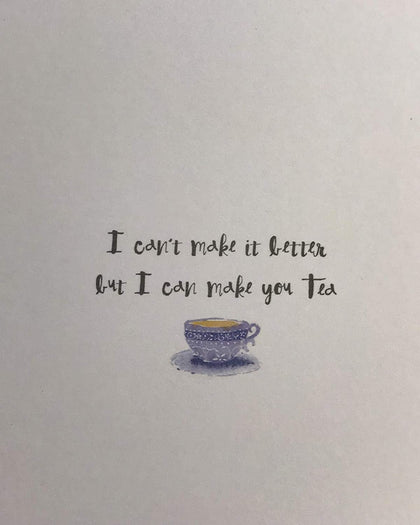 I can't make it better
but I can make you Tea